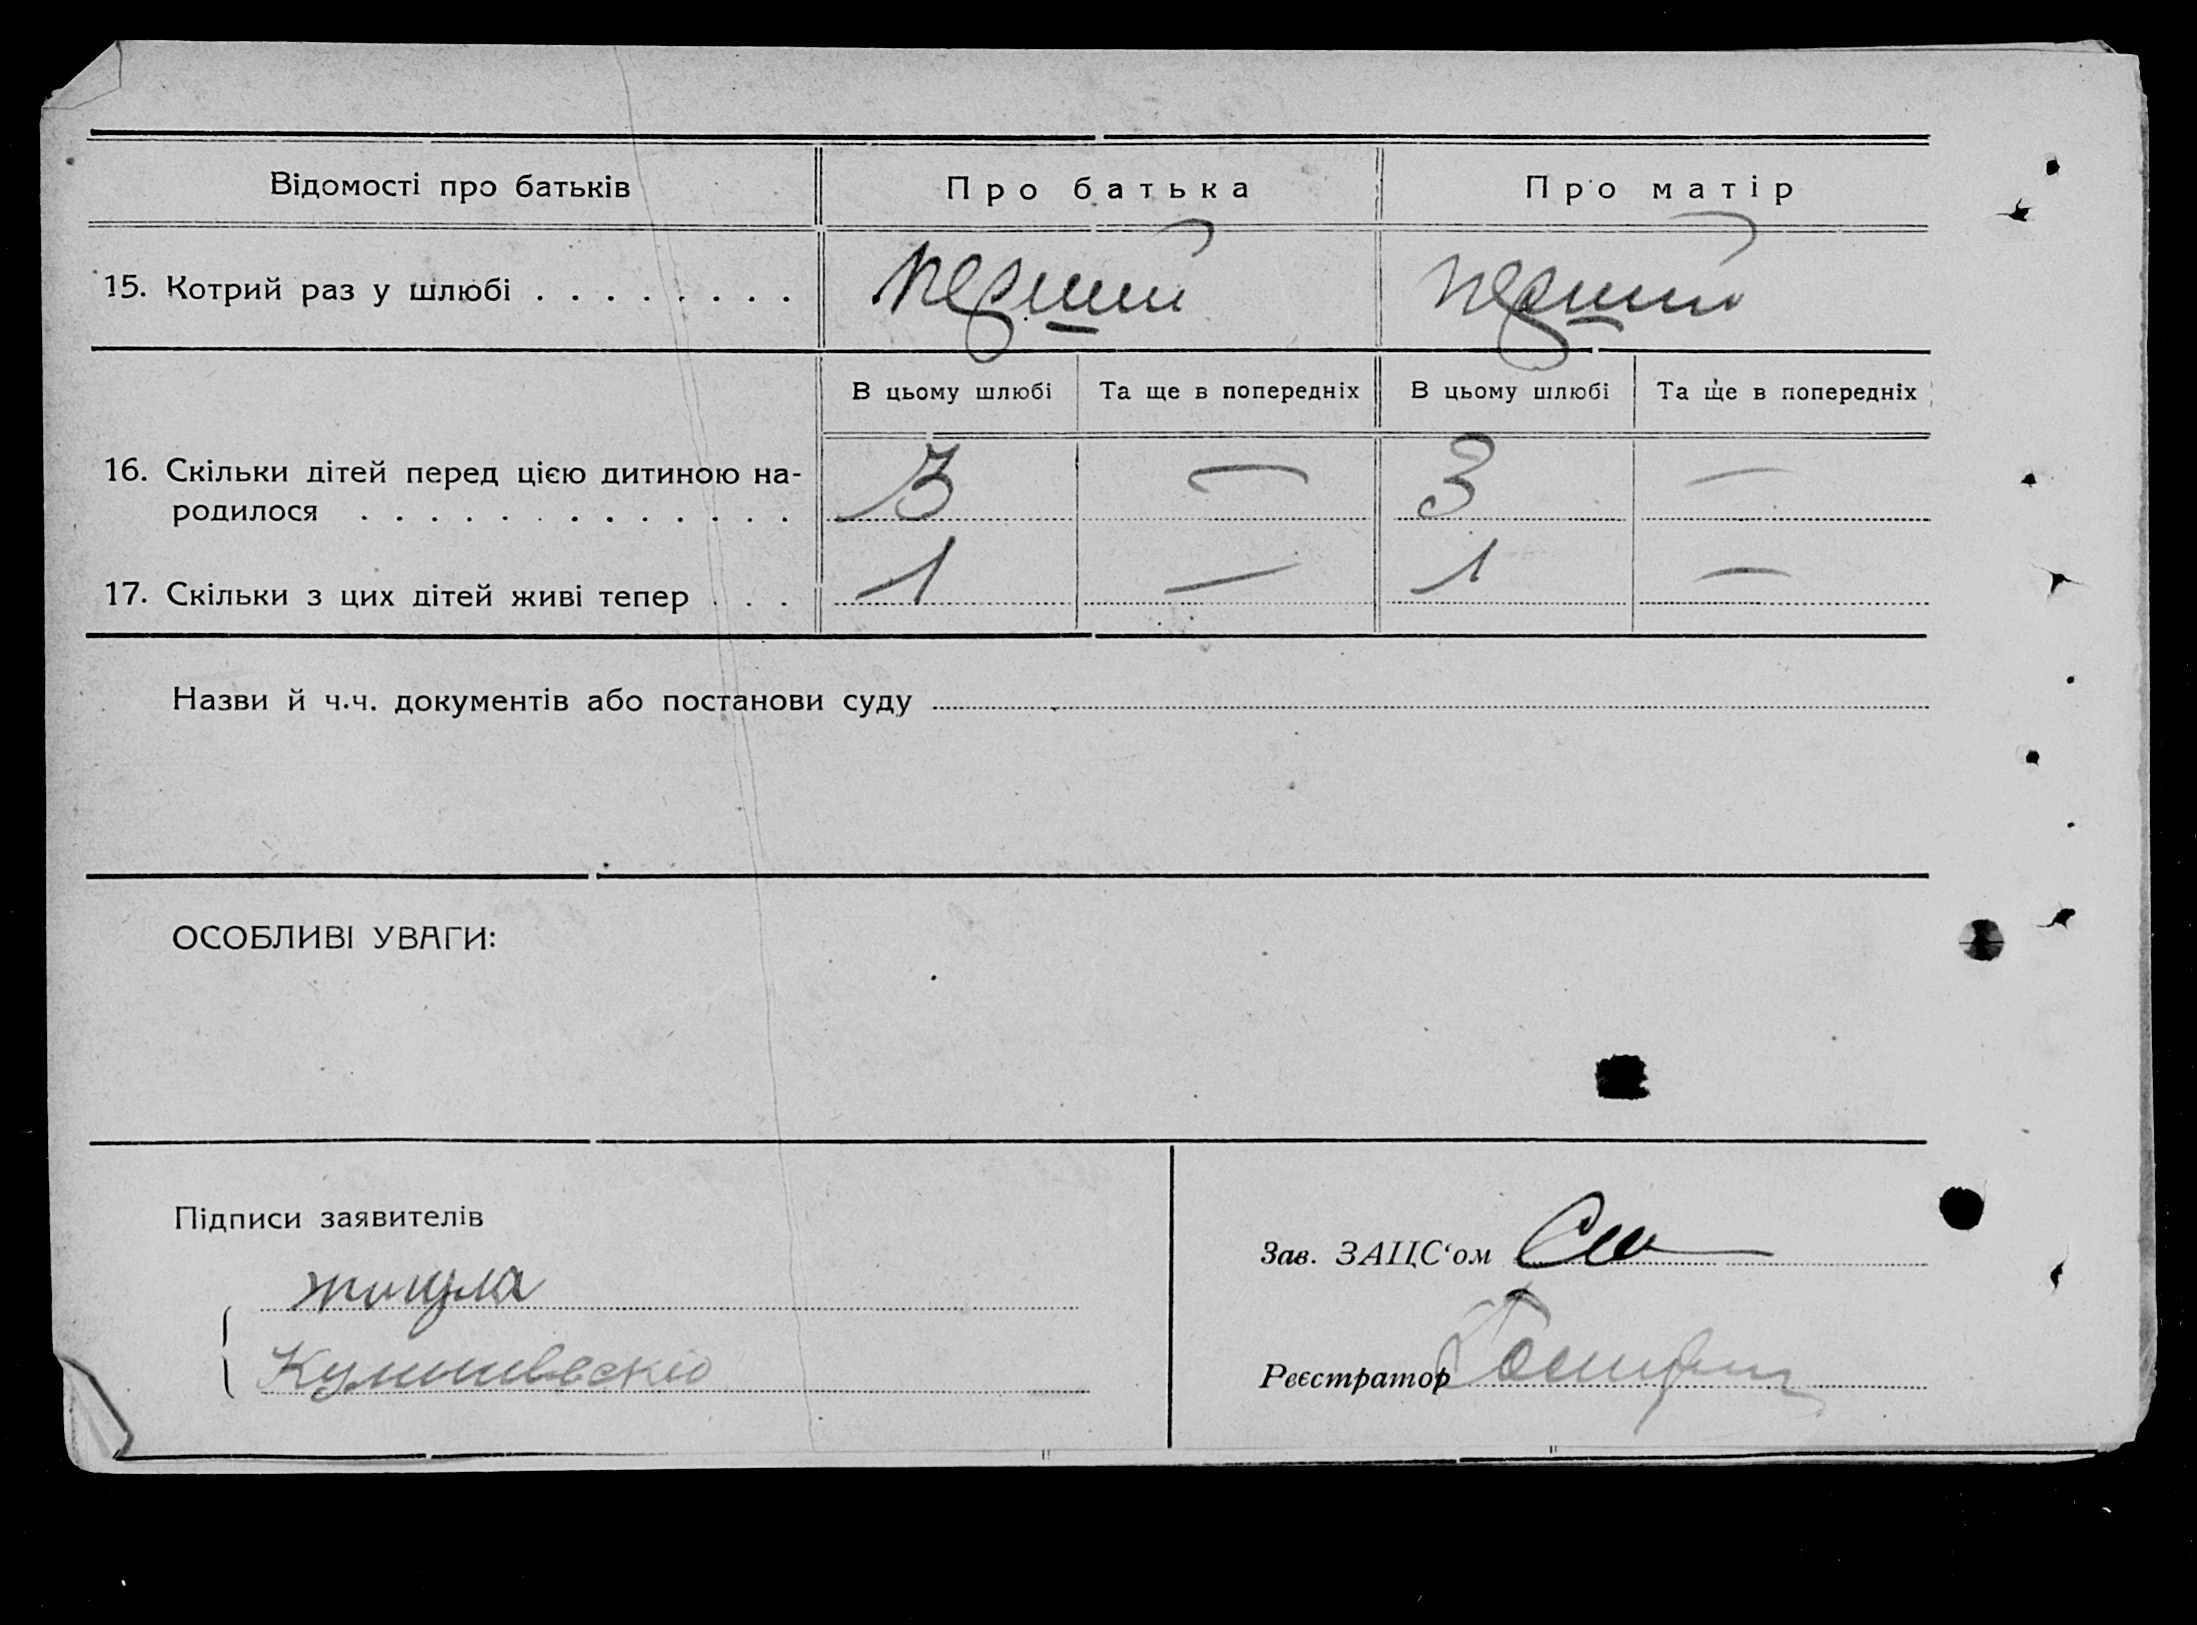 Відомості про батьків Про батька Про матір
15. Котрий раз у шлюбі . . . . . . . . перший перший
В цьому шлюбі Та ще в попередніх В цьому шлюбі Та ще в попередніх
16. Скільки дітей перед цією дитиною на-
родилося . . . . . . . . . . . . . 3 — 3 —
17. Скільки з цих дітей живі тепер . . . 1 — 1 —
Назви й ч.ч. документів або постанови суду
ОСОБЛИВІ УВАГИ:
Підписи заявителів
Зав. ЗАЦС‘ом
Реєстратор